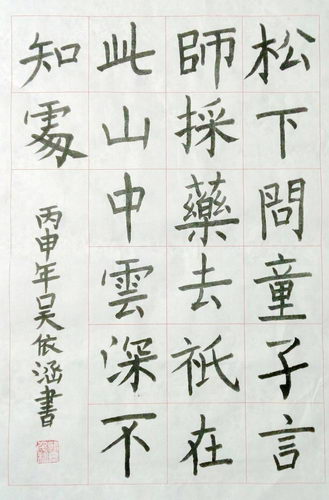 松下問童子言
師採藥去衹在
此山中雲深不
知處
丙申年吴依涵書